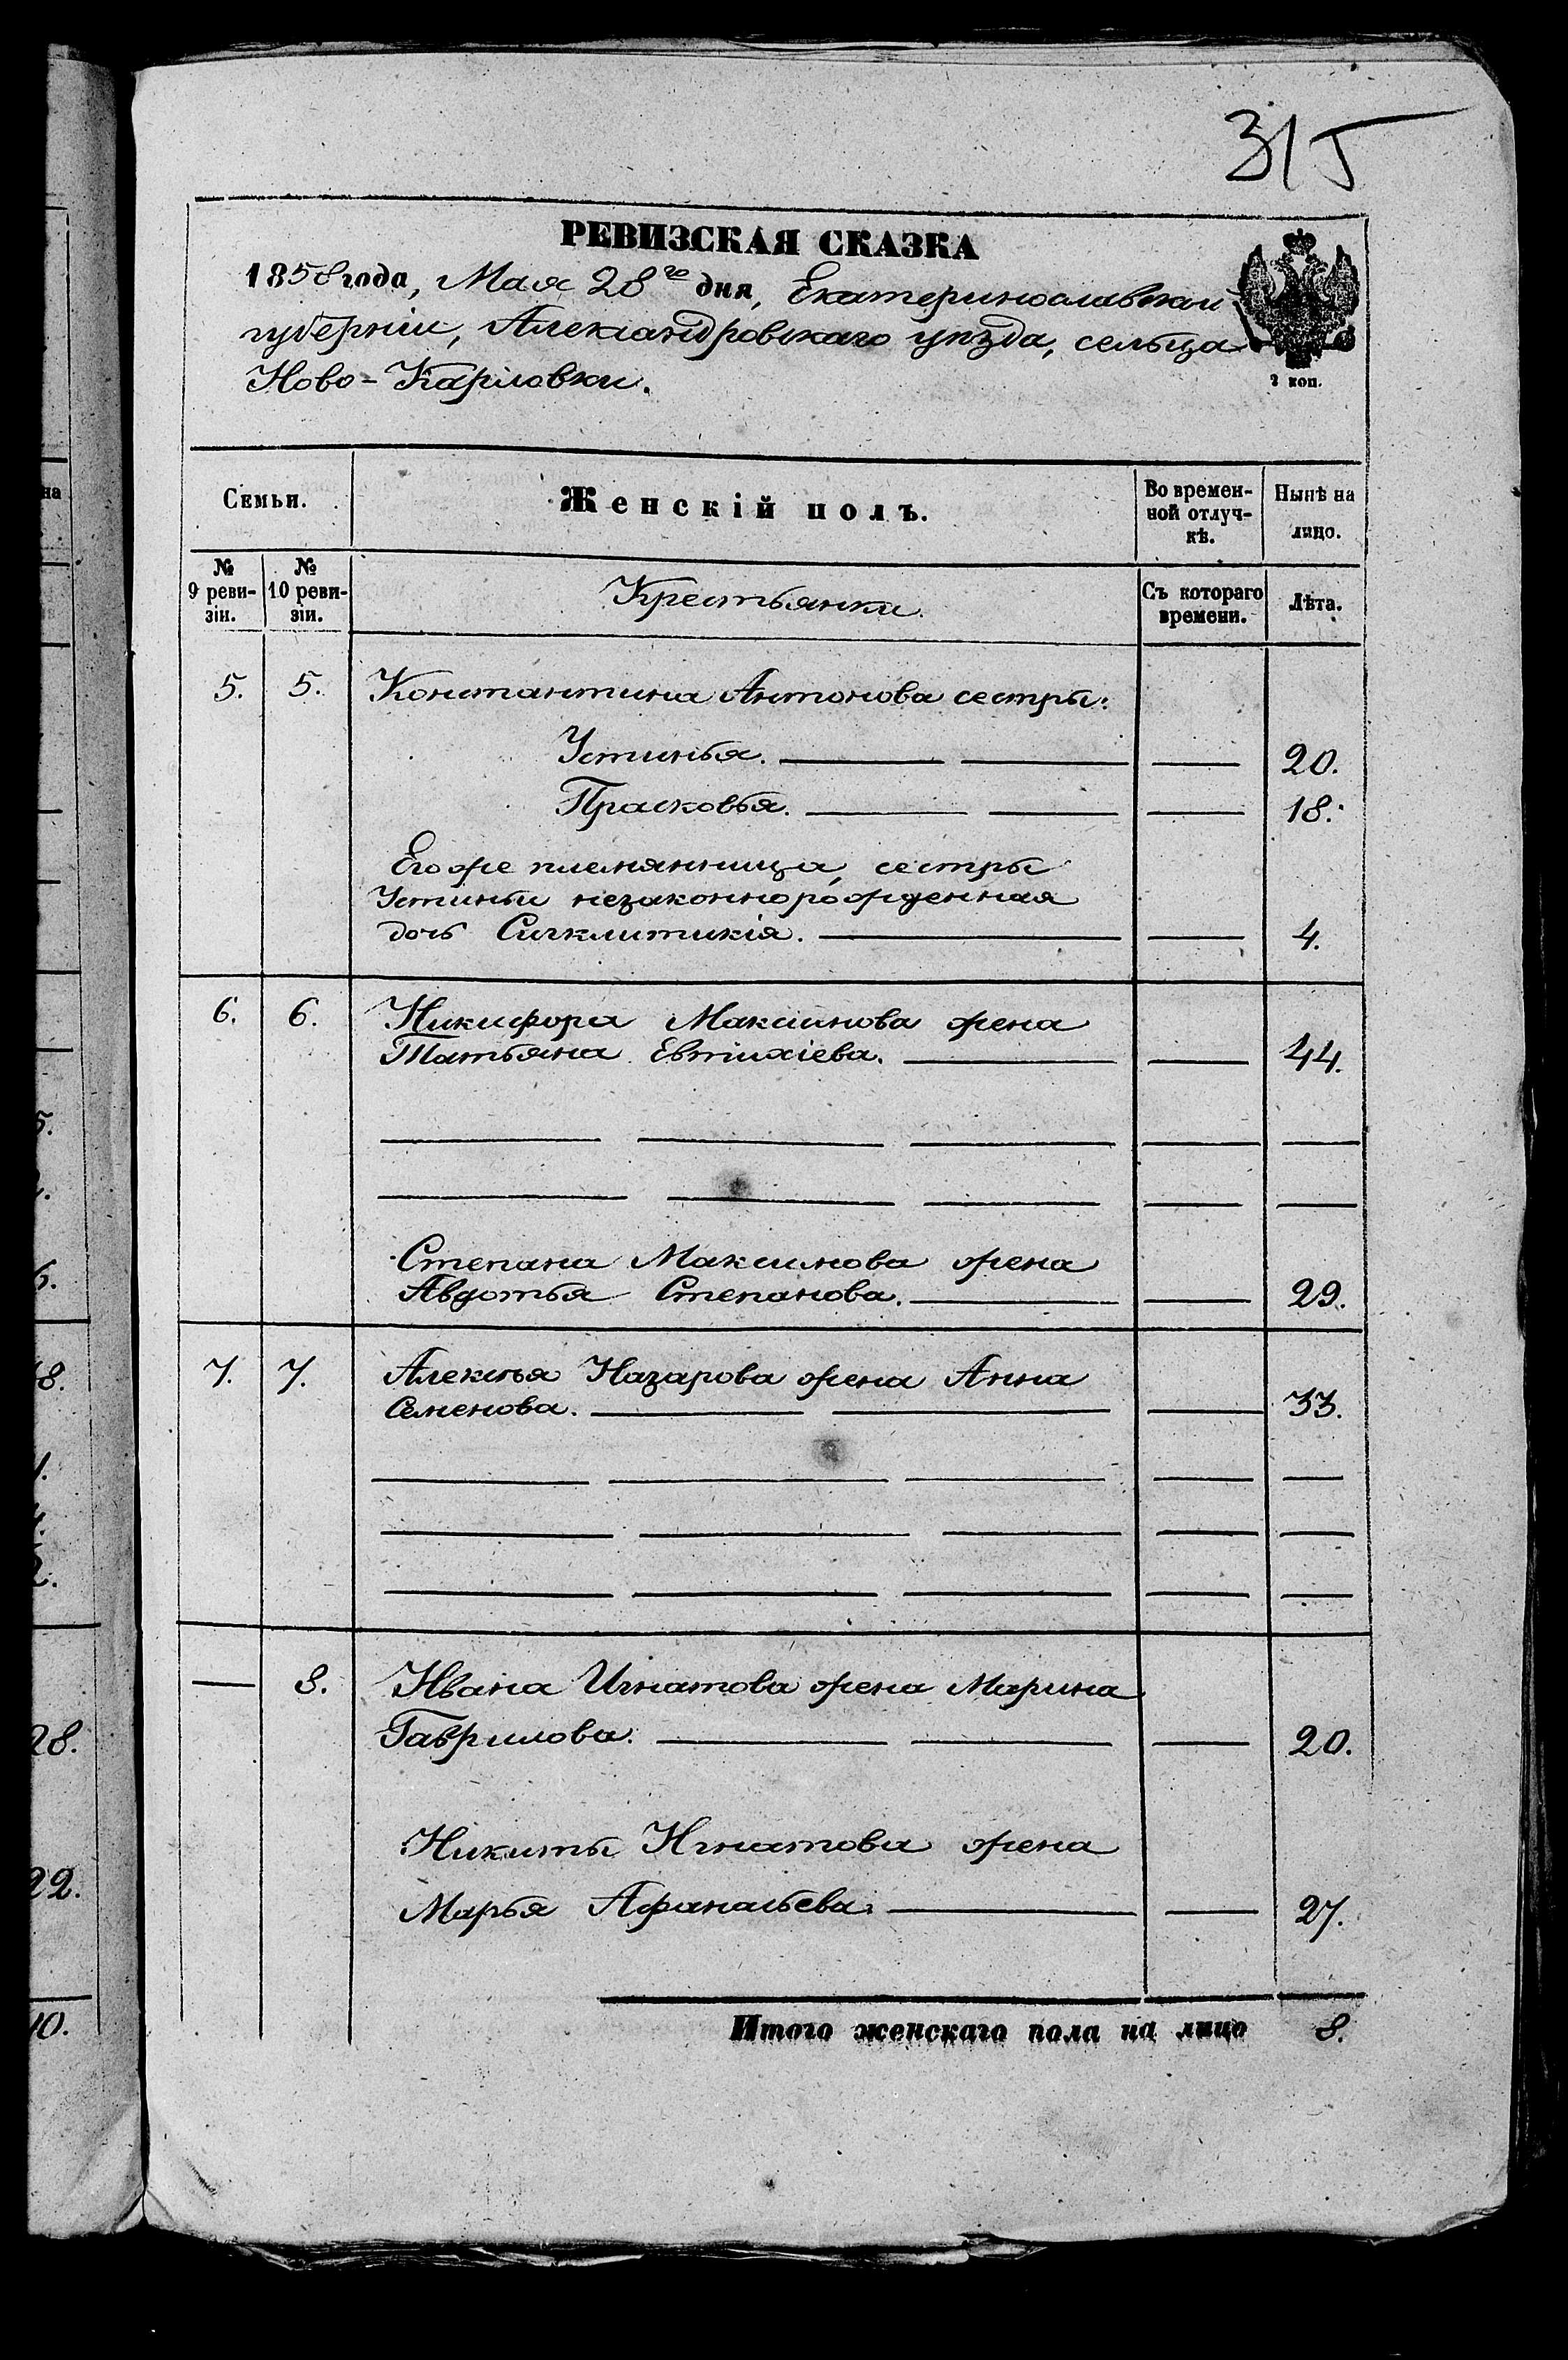 315
РЕВИЗСКАЯ СКАЗКА
1858 года, Мая 28го дня, Екатеринославской
губерніи, Александровскаго уѣзда, сельца
Ново-Карловки.
2 коп.
Семьи. Женскій полъ. Во времен- Нынѣ на
ной отлуч- лицо.
кѣ.
№ № Крестьянки. Съ котораго Лѣта.
9 реви- 10 реви- времени.
зіи. зіи.
5. 5. Константина Антонова сестры:
Устинья. 20.
Прасковья. 18.
Его же племянница, сестры
Устиньи незаконнорожденная
дочь Сигклитикія. 4.
6. 6. Никифора Максимова жена
Татьяна Евтихіева. 44.
Степана Максимова жена
Авдотья Степанова. 29.
7. 7. Алексѣя Назарова жена Анна
Семенова. 33.
8. Ивана Игнатова жена Марина
Гаврилова. 20.
Никиты Игнатова жена
Марья Афанасьева. 27.
Итого женскаго пола на лицо 8.